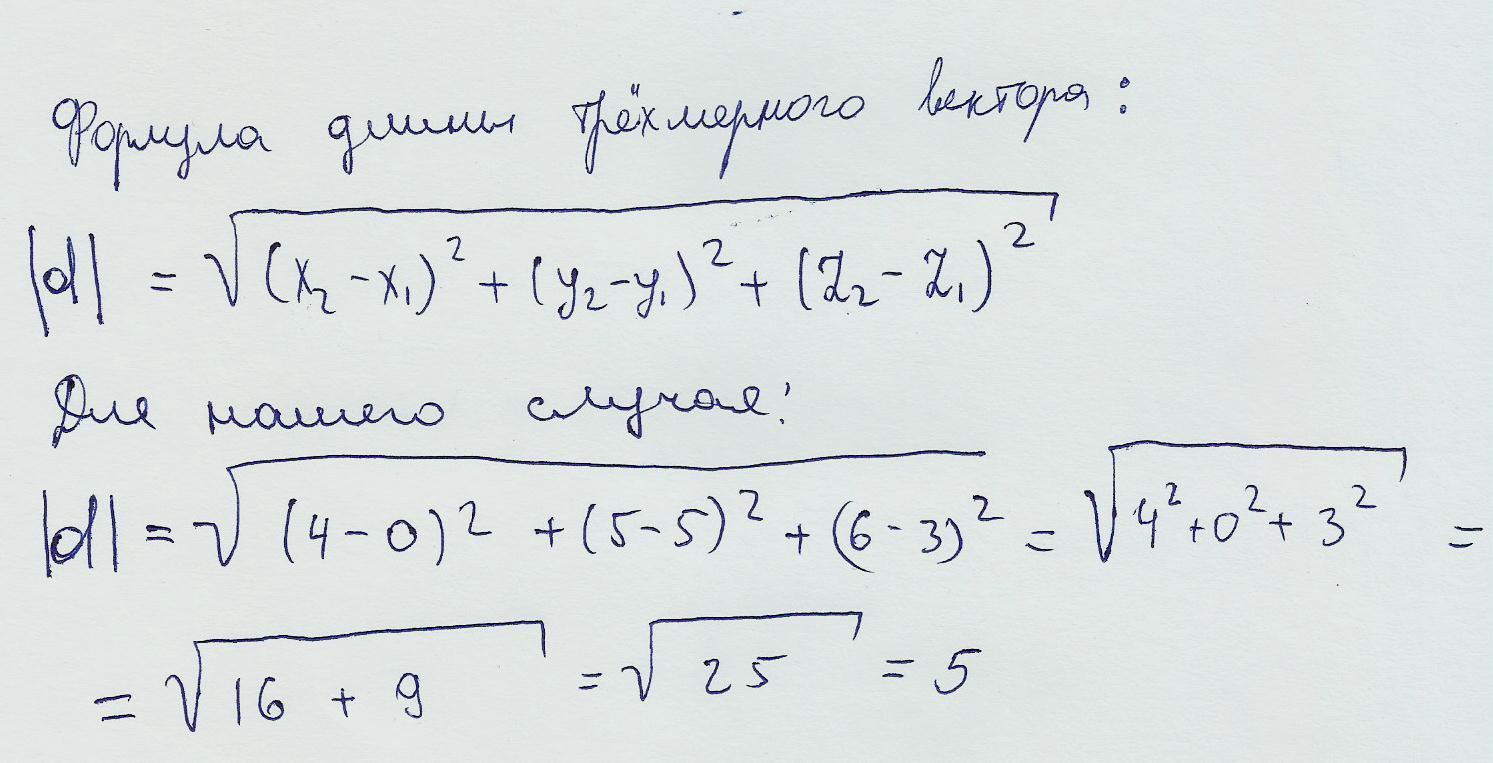 Формула длины трёхмерного вектора:
|d| = √(x₂-x₁)² + (y₂-y₁)² + (z₂-z₁)²
Для нашего случая:
|d| = √(4-0)² + (5-5)² + (6-3)² = √4²+0²+3² =
= √16 + 9 = √25 = 5